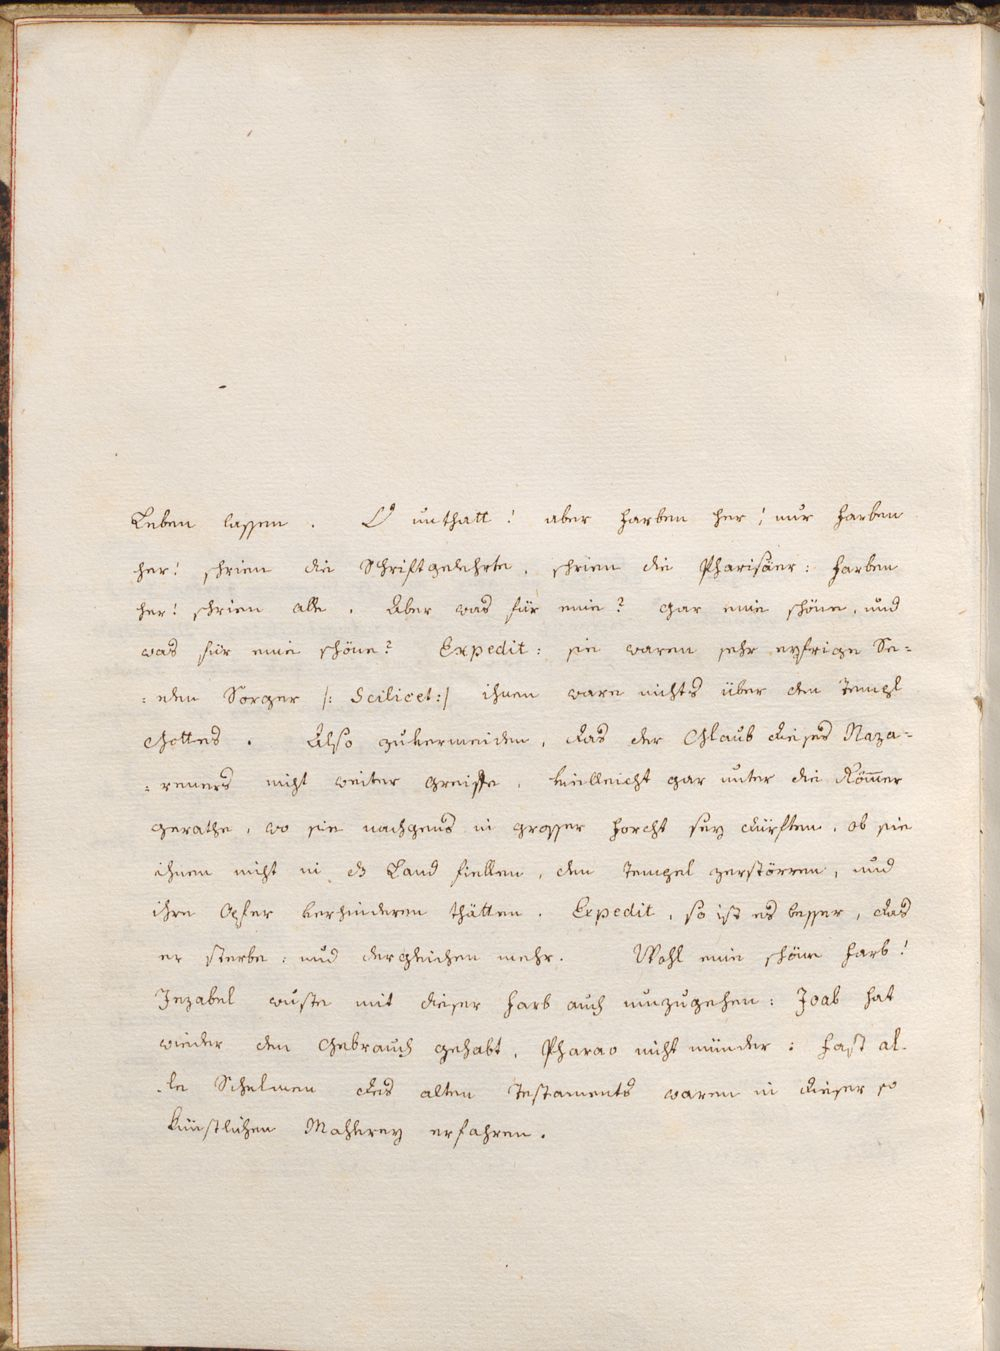 Leben lassen. O unthatt! aber Farben her! nur Farben
her! schrien die Schriftgelehrte, schrien die Pharisäer: Farben
her! schrien alle. Aber was für eine? Gar eine schöne, und
was für eine schöne? Expedit: sie waren sehr eyfrige See=
=len Sorger /: Scilicet:/ ihnen ware nichts über den Tempel
Gottes. Also zuvermeiden, das der Glaub dieses Naza=
=reners nicht weiter greiffe, vielleicht gar unter die Römer
gerathe, wo sie nachgens in grosser Forcht sey dürften, ob sie
ihnen nicht in dz Land fiellen, den Tempel zerstörren, und
ihre Opfer verhinderen thätten. Expedit, so ist es besser, das
er sterbe: und dergleichen mehr. Wohl eine schöne Farb!
Jezabel wuste mit dieser Farb auch umzugehen: Joab hat
wieder den Gebrauch gehabt, Pharao nicht münder: Fast al-
-le Schelmen des alten Testaments waren in dieser so
künstlichen Mahlerey erfahren.